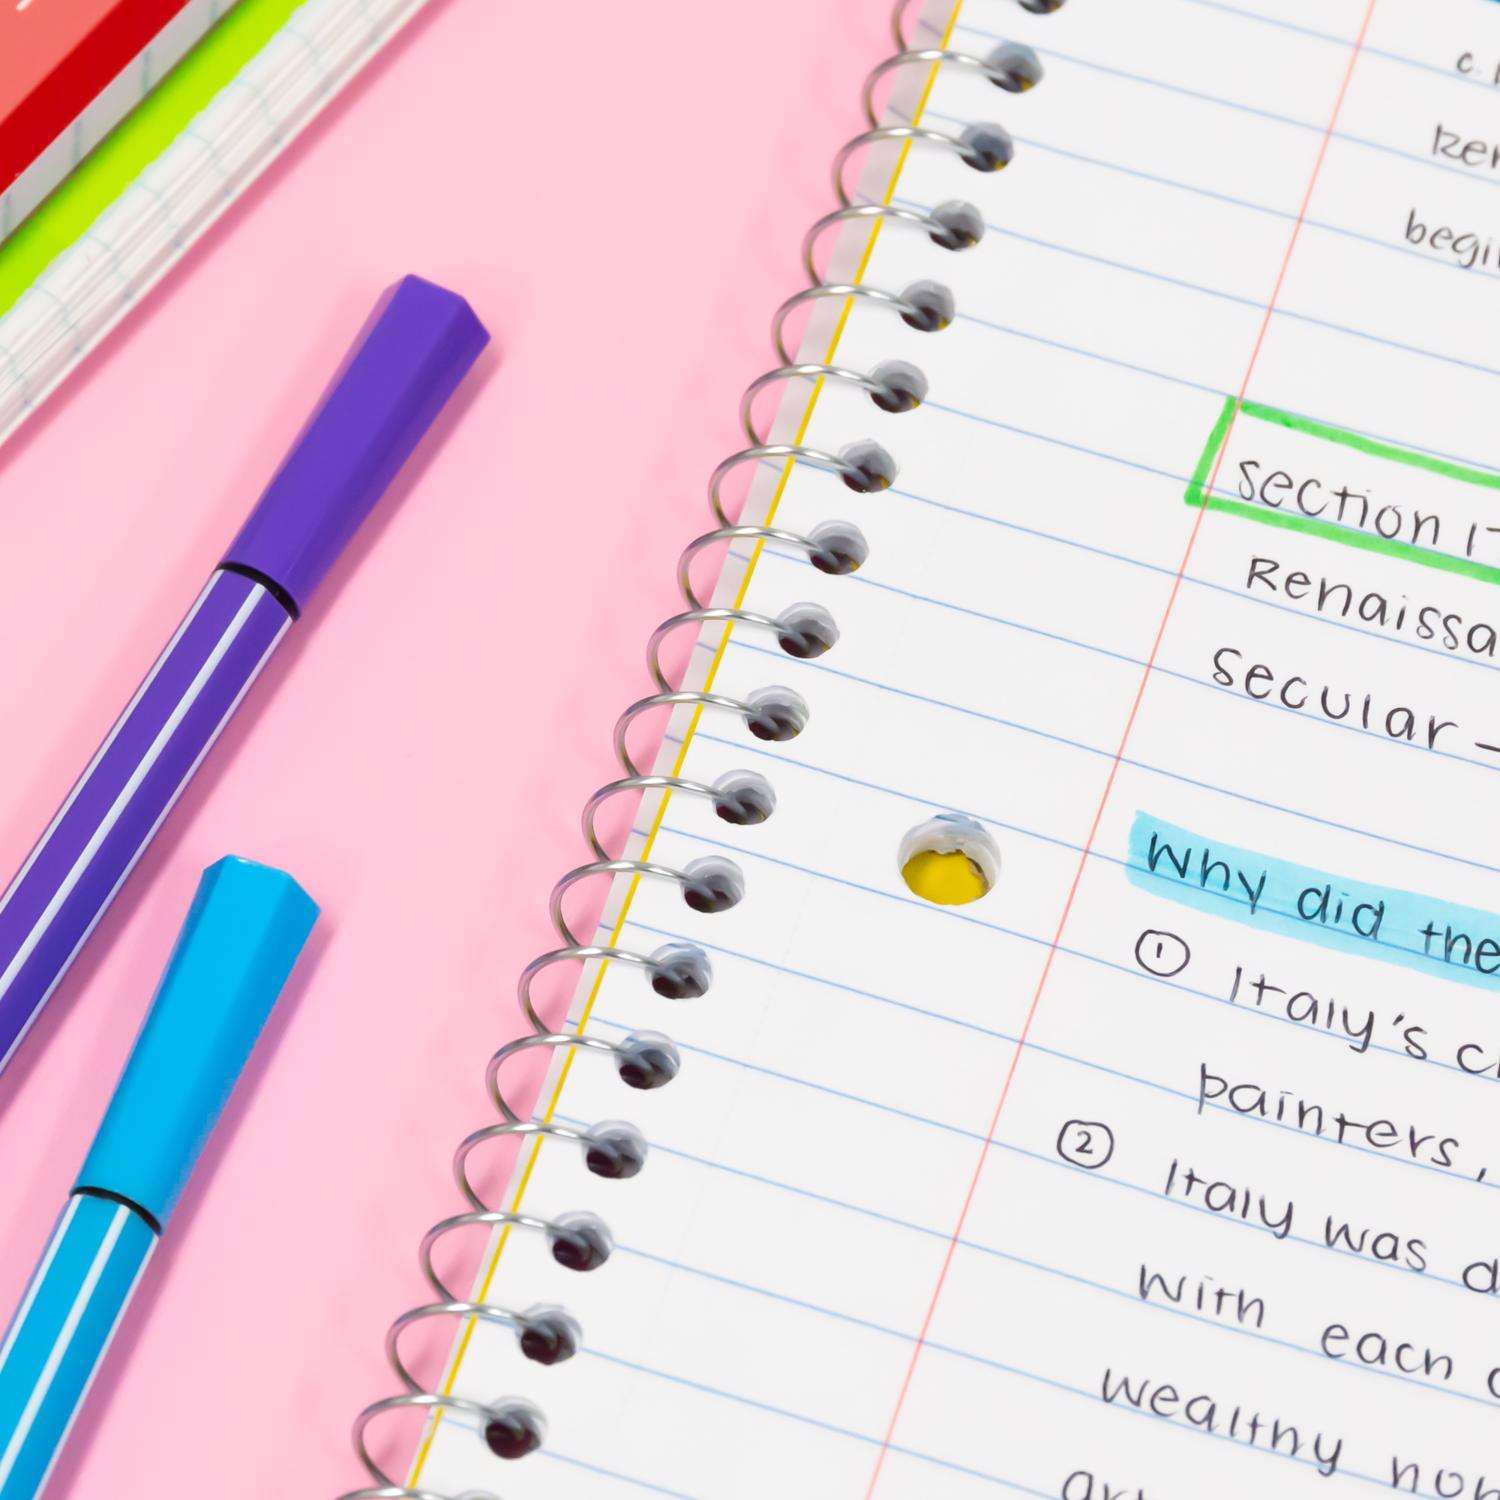 begin
section 17
Renaissa
secular -
Why did the
① Italy's c
painters,
② Italy was d
with each
wealthy non